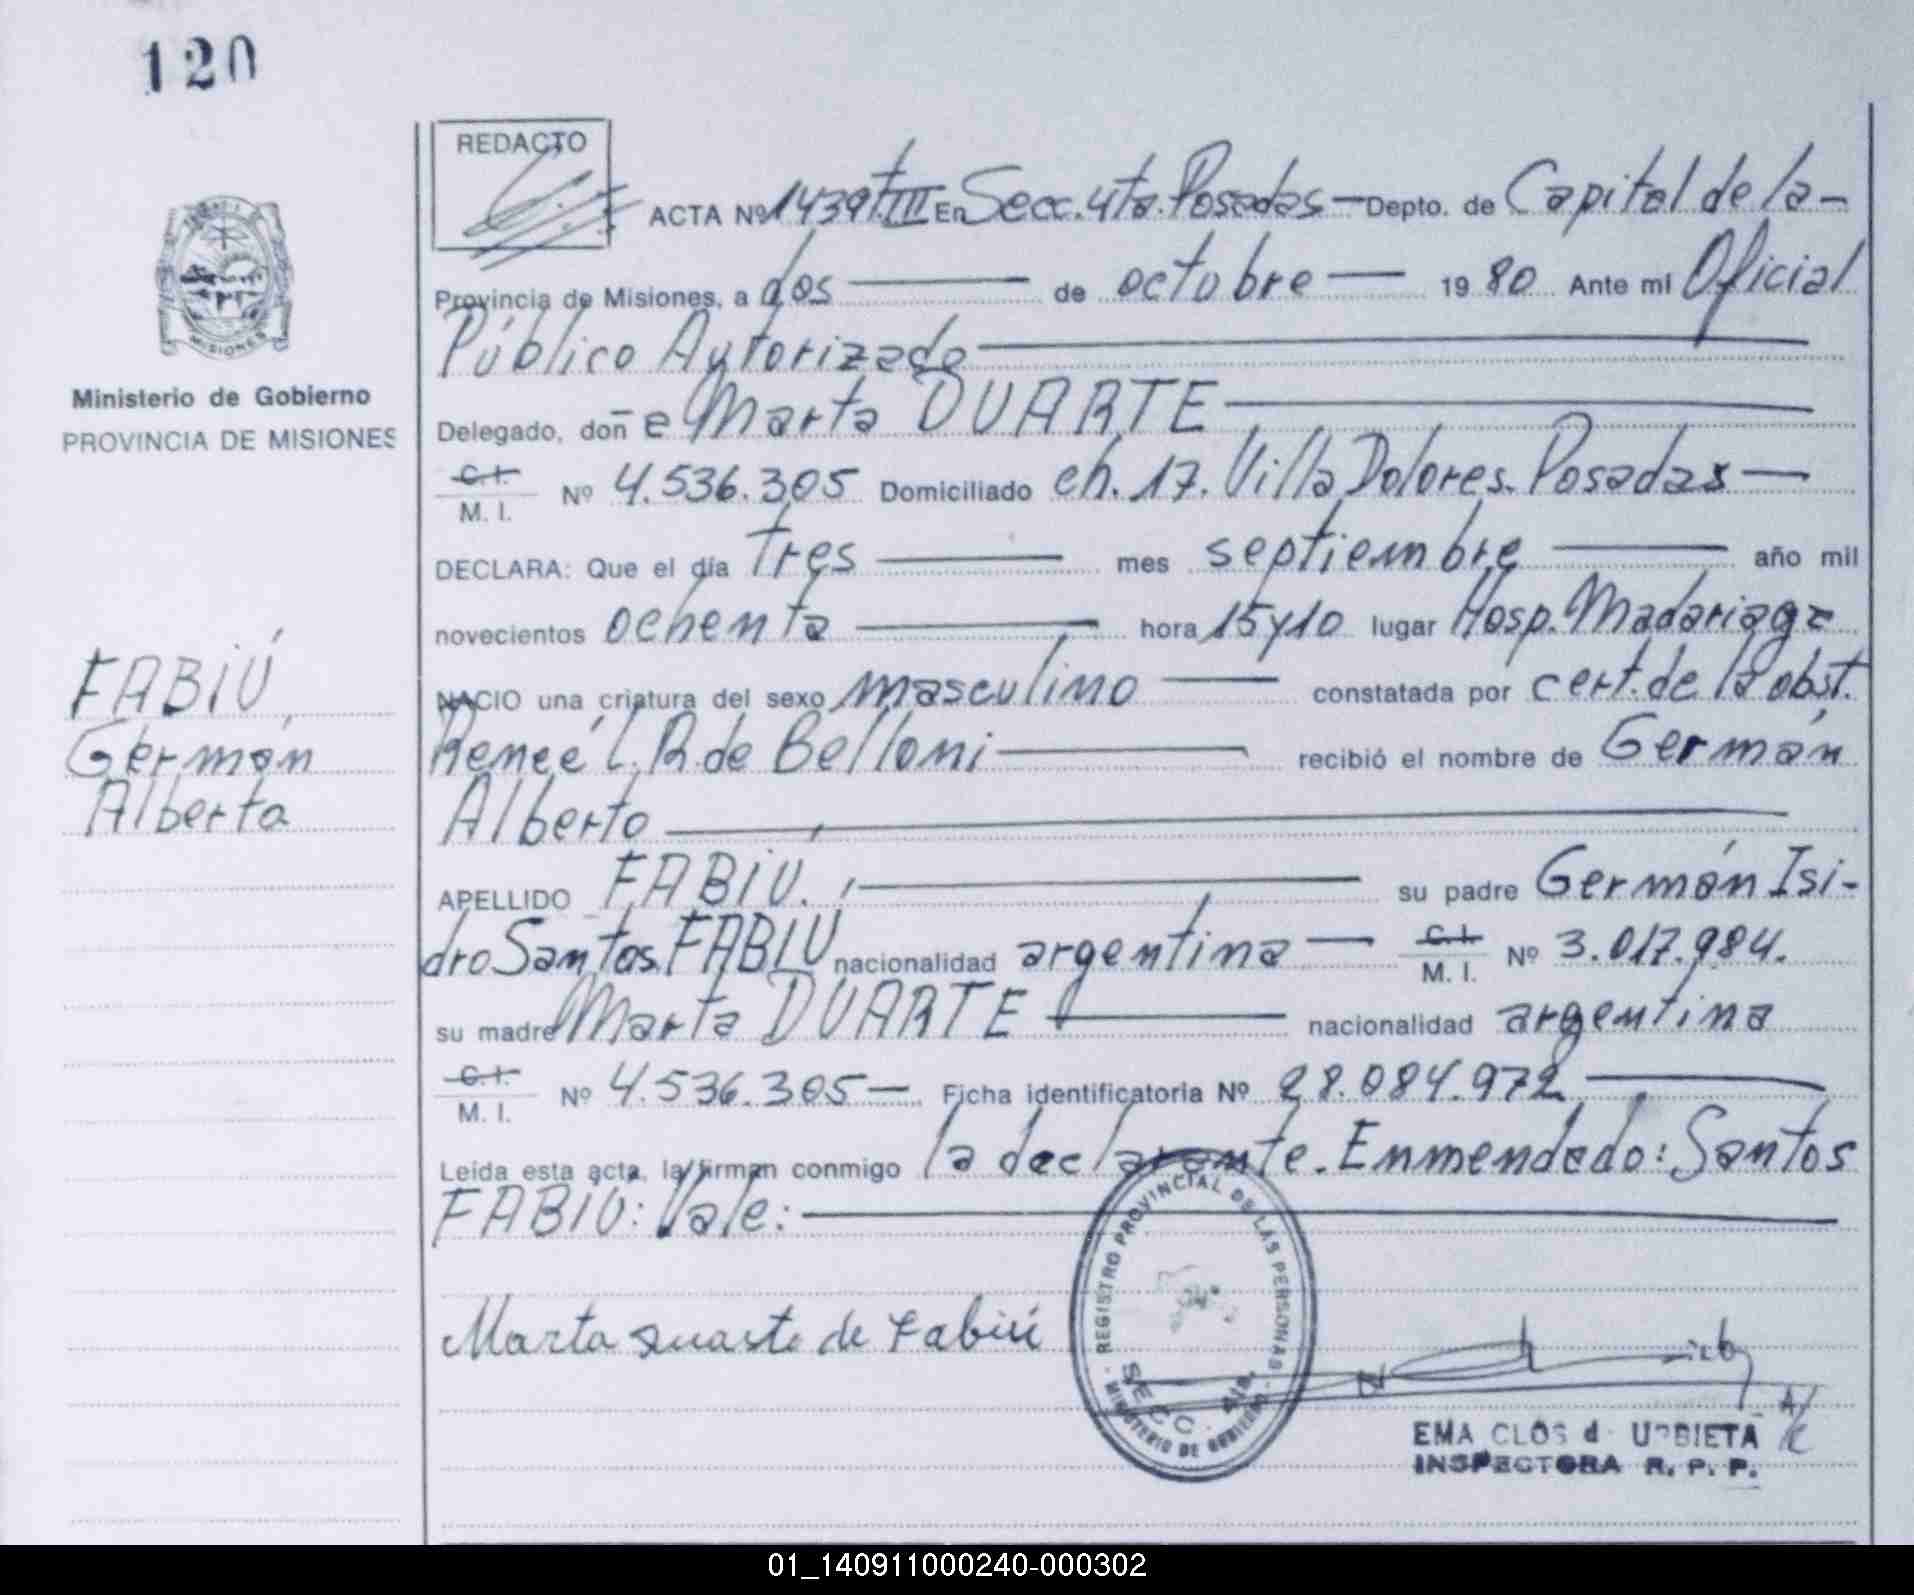 120
REDACTO
ACTA Nº 1439 T.III En Secc. 4ta. Posadas — Depto. de Capital de la-
Provincia de Misiones, a dos — de octubre — 19 80 Ante mi Oficial
Público Autorizado
Delegado, doñ e Marta DUARTE
C. I.
M. I. Nº 4.536.305 Domiciliado ch. 17. Villa Dolores. Posadas —
DECLARA: Que el día tres — mes septiembre — año mil
novecientos ochenta — hora 15 y 10 lugar Hosp. Madariaga
NACIO una criatura del sexo masculino — constatada por cert. de la obst.
Reneé L. R. de Belloni — recibió el nombre de Germán
Alberto
APELLIDO FABIÚ. — su padre Germán Isi-
dro Santos FABIU nacionalidad argentina — C. I. M. I. Nº 3.017.984.
su madre Marta DUARTE — nacionalidad argentina
C. I.
M. I. Nº 4.536.305 — Ficha identificatoria Nº 28.084.972 —
Leída esta acta, la firman conmigo la declarante. Enmendado: Santos
FABIU: Vale: —
Marta Duarte de Fabiú
REGISTRO PROVINCIAL DE LAS PERSONAS
SECC. 4ta.
MINISTERIO DE GOBIERNO
EMA CLOS d URBIETA
INSPECTORA R. P. P.
MISIONES
Ministerio de Gobierno
PROVINCIA DE MISIONES
FABIÚ,
Germán
Alberto
01_140911000240-000302